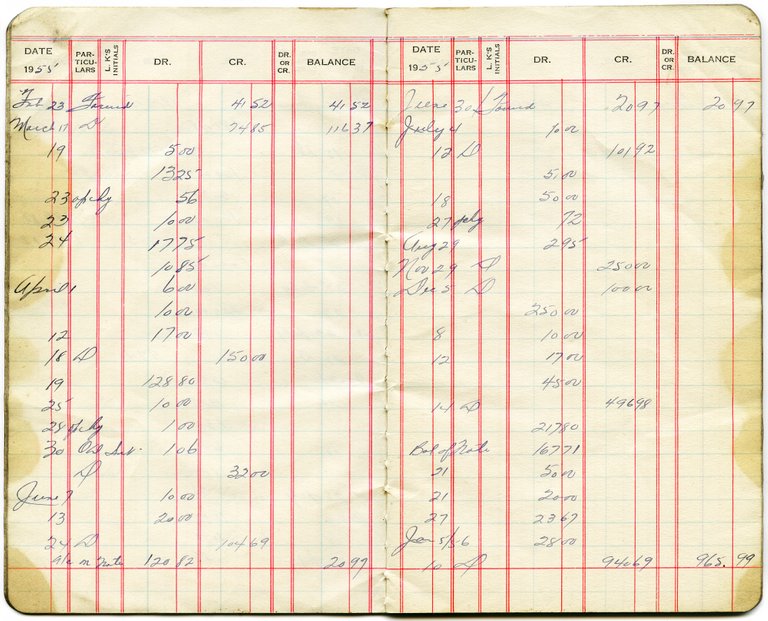 DATE PAR-TICU-LARS L. K'S INITIALS DR. CR. DR. OR CR. BALANCE
1955
Feb 23 Forwd 4152 4152
March 17 D 7485 11637
19 500
1325
23 56
23 1000
24 1775
1085
April 1 600
1000
12 1700
18 D 15000
19 12880
25 1000
28 100
30 106
D 3200
June 7 1000
13 2000
24 D 10469
a/c on Note 12082 2097
DATE PAR-TICU-LARS L. K'S INITIALS DR. CR. DR. OR CR. BALANCE
1955
June 30 Forwd 2097 2097
July 4 1000
12 D 10192
500
18 5000
27 72
Aug 29 295
Nov 29 D 25000
Dec 5 D 10000
25000
8 1000
12 1700
4500
14 D 49698
21780
Bal of Note 16771
21 5000
21 2000
27 2367
Jan 5/56 2800
10 D 94069 965.99